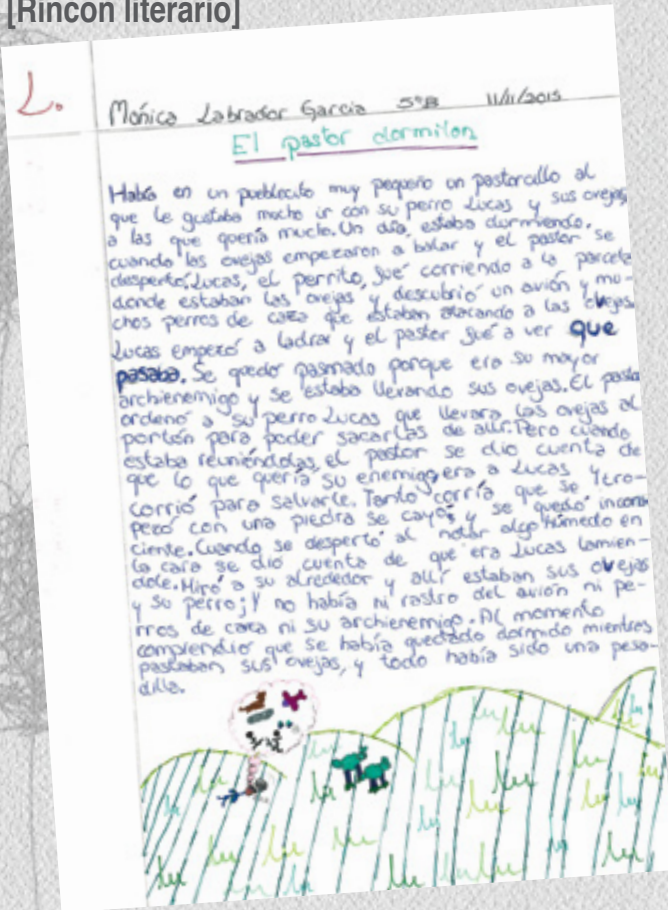 [Rincón literario]
L.
Mónica Labrador García 5ºB 11/11/2015
El pastor dormilon
Había en un pueblecito muy pequeño un pastorcillo al
que le gustaba mucho ir con su perro Lucas y sus ovejas,
a las que quería mucho. Un día, estaba durmiendo,
cuando las ovejas empezaron a balar y el pastor se
despertó. Lucas, el perrito, fué corriendo a la parcela
donde estaban las ovejas y descubrió un avión y mu-
chos perros de caza que estaban atacando a las ovejas.
Lucas empezó a ladrar y el pastor fué a ver que
pasaba. Se quedo pasmado porque era su mayor
archienemigo y se estaba llevando sus ovejas. El pastor
ordenó a su perro Lucas que llevara las ovejas al
portón para poder sacarlas de allí. Pero cuando
estaba reuniéndolas, el pastor se dio cuenta de
que lo que quería su enemigo era a Lucas y
corrió para salvarle. Tanto corría que se tro-
pezó con una piedra se cayó, y se quedó incons
ciente. Cuando se despertó al notar algo húmedo en
la cara se dió cuenta de que era Lucas lamien-
dole. Miró a su alrededor y allí estaban sus ovejas
y su perro; Y no había ni rastro del avión ni pe-
rros de caza ni su archienemigo. Al momento
comprendió que se había quedado dormido mientras
pastaban sus ovejas, y todo había sido una pesa-
dilla.